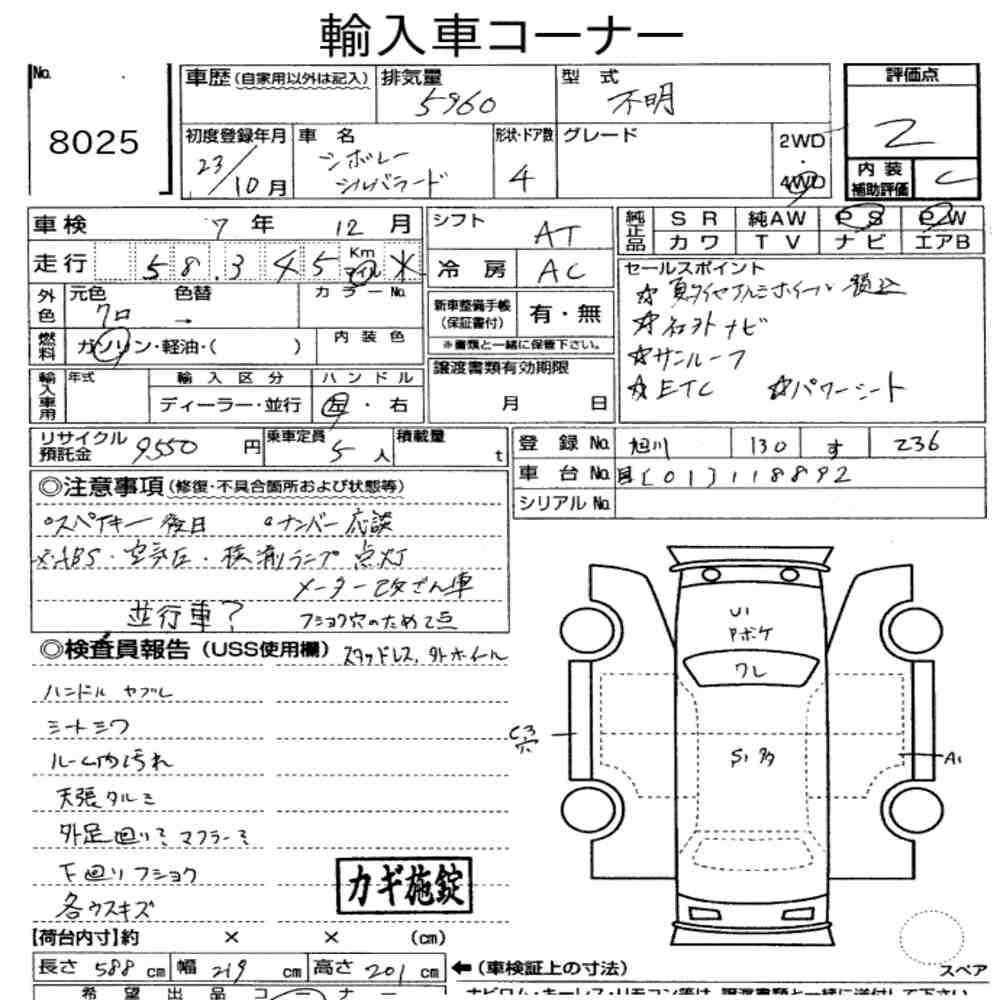 輸入車コーナー
No.
8025
車歴(自家用以外は記入)
排気量
5960
型式
不明
評価点
2
初度登録年月
23/10月
車名
シボレー
シルバラード
形状・ドア数
4
グレード
2WD
・
4WD
内装
補助評価
C
車検 7年 12月
シフト
AT
純正品
SR 純AW PS PW
カワ TV ナビ エアB
走行 58.345 Km マイル ＊
冷房
AC
セールスポイント
☆夏タイヤアルミホイール積込
☆社外ナビ
☆サンルーフ
☆ETC ☆パワーシート
外色
元色 色替
クロ →
カラーNo.
新車整備手帳
(保証書付)
有・無
※書類と一緒に保管下さい。
燃料
ガソリン・軽油・( )
内装色
輸入車用
年式
輸入区分
ディーラー・並行
ハンドル
左・右
譲渡書類有効期限
月 日
リサイクル
預託金
9550円
乗車定員
5人
積載量
t
登録No. 旭川 130 す 236
車台No. 国[01]118892
シリアルNo.
◎注意事項(修復・不具合箇所および状態等)
○スペアキー後日 ○ナンバー応談
×ABS・空気圧・横滑ランプ点灯
メーター改ざん車
並行車? フショク穴のため2点
◎検査員報告(USS使用欄) スタッドレス、外ホイール
ハンドルヤブレ
シートシワ
ルーム内汚れ
天張タルミ
外足廻りミ マフラーミ
下廻リフショク
各ウスキズ
カギ施錠
U1
Pボケ
ワレ
C3
穴
S1多
A1
【荷台内寸】約 × × (cm)
長さ 588 cm 幅 219 cm 高さ 201 cm
←(車検証上の寸法)
スペア
希望出品コーナー
ナビロム・キーレス・リモコン等は、譲渡書類と一緒に送付して下さい